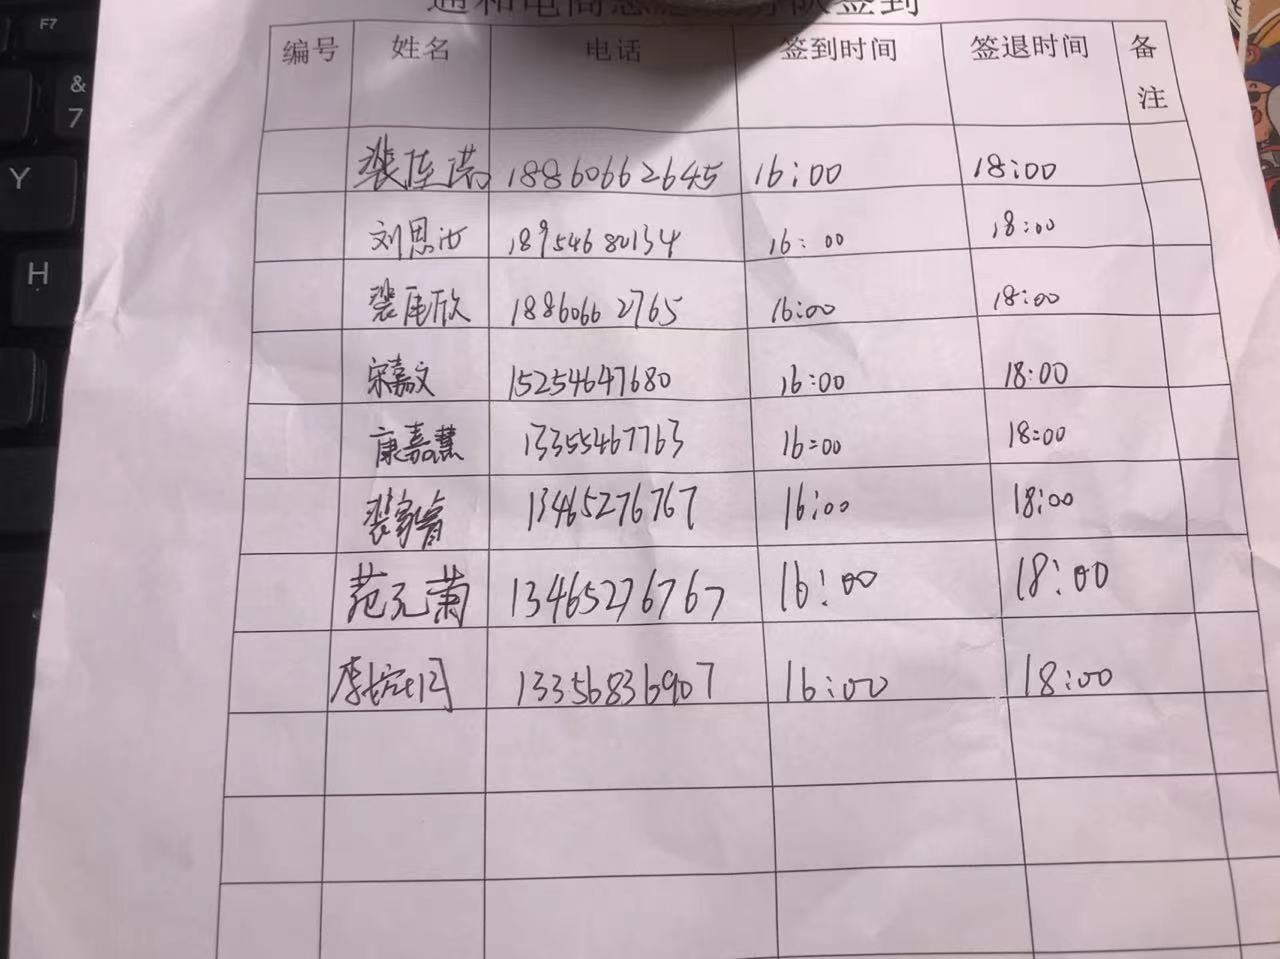 编号 姓名 电话 签到时间 签退时间 备注
18860662645 16:00 18:00
刘思 18954680134 16:00 18:00
18860662765 16:00 18:00
宋嘉文 15254647680 16:00 18:00
康嘉慧 13355467763 16:00 18:00
13465276767 16:00 18:00
范元菊 13465276767 16:00 18:00
李 13356836907 16:00 18:00
F7
&
7
Y
H